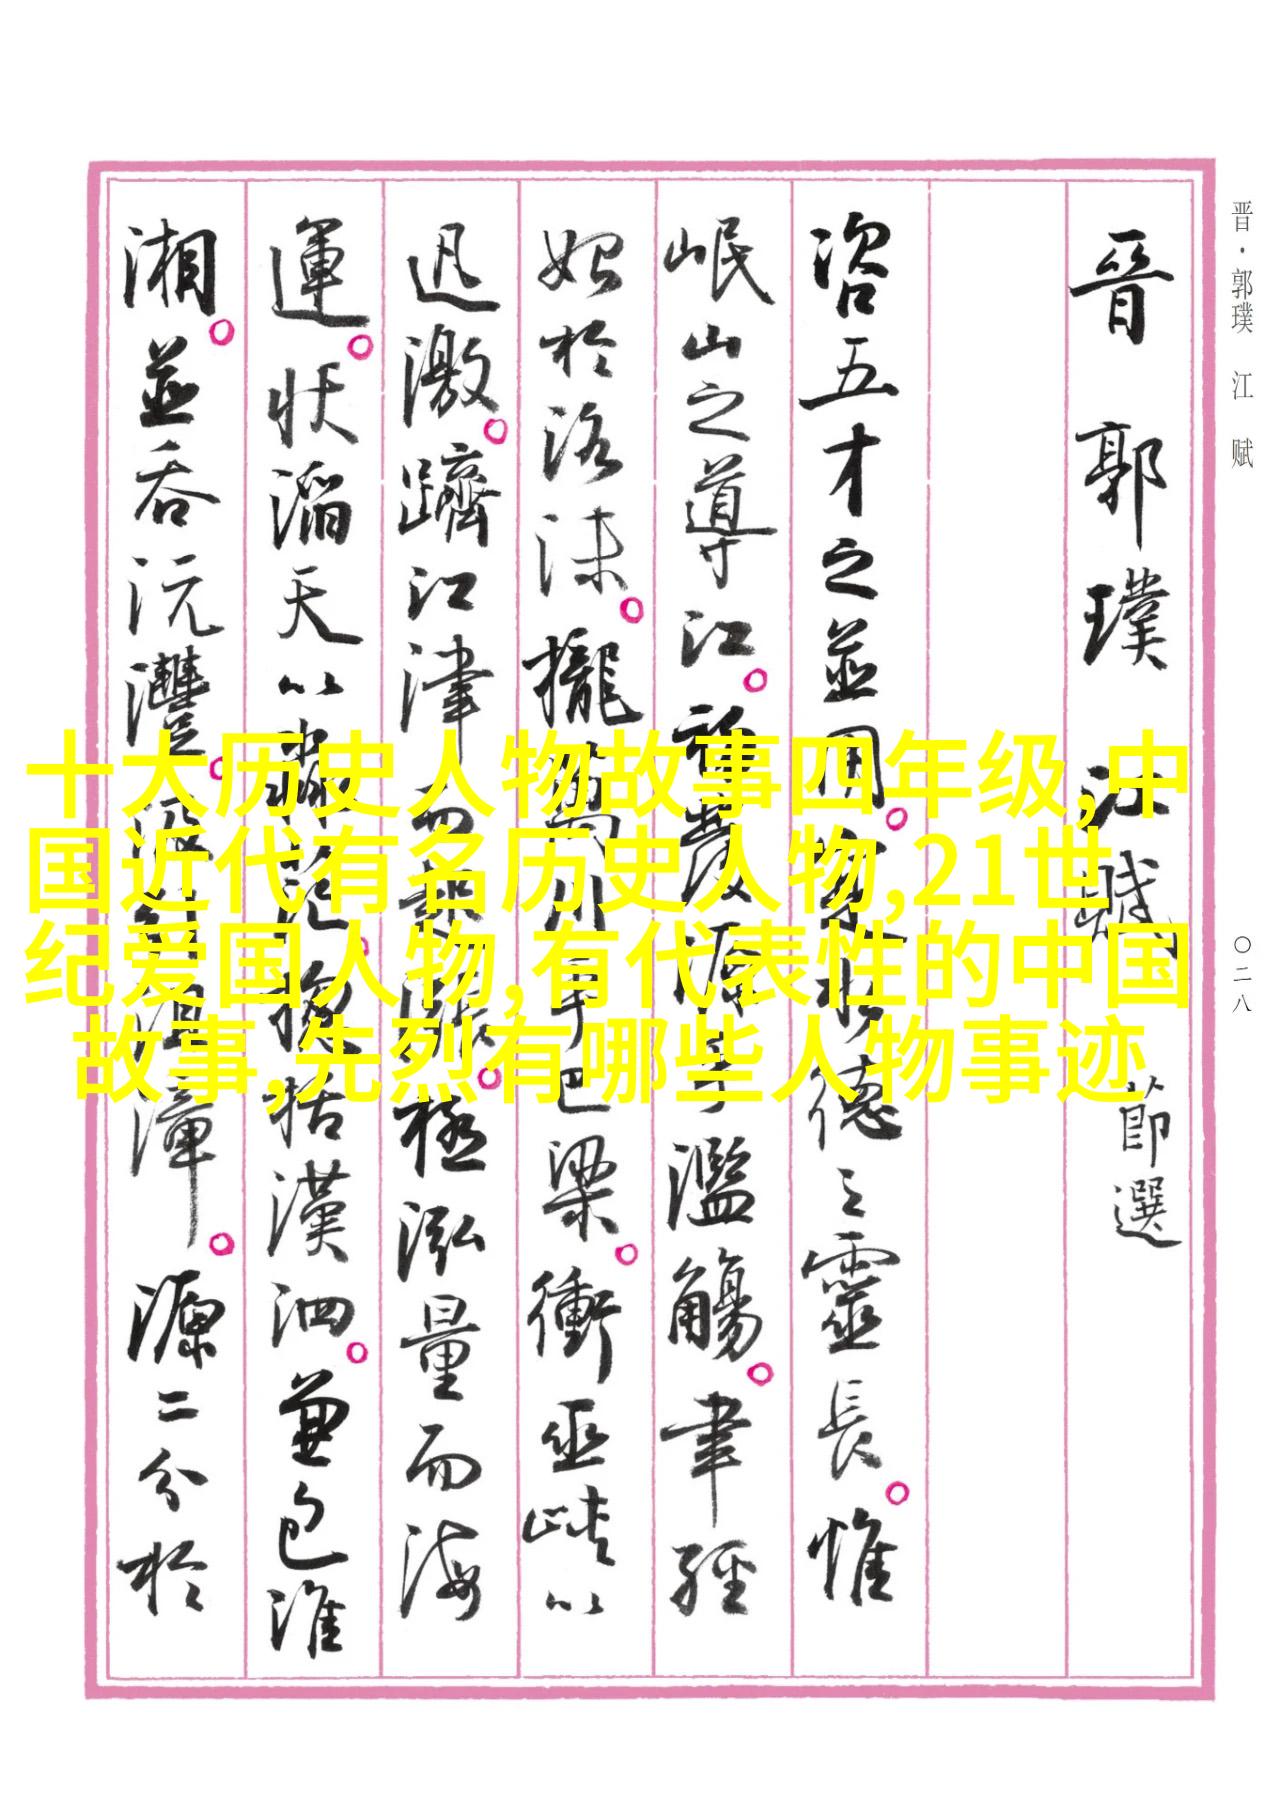 晋·郭璞 江 赋
〇二八
晉郭璞江賦節選
咨五才之並用。寔水德之靈長。惟
岷山之導江。初發源乎濫觴。聿經
始於洛沬。攏萬川乎巴梁。衝巫峽以
迅激。躋江津而起漲。極泓量而海
運。狀滔天以淼茫。總括漢泗。兼包淮
湘。並吞沅灃。汲引沮漳。源二分於
十大历史人物故事四年级,中
国近代有名历史人物,21世
纪爱国人物,有代表性的中国
故事,先烈有哪些人物事迹